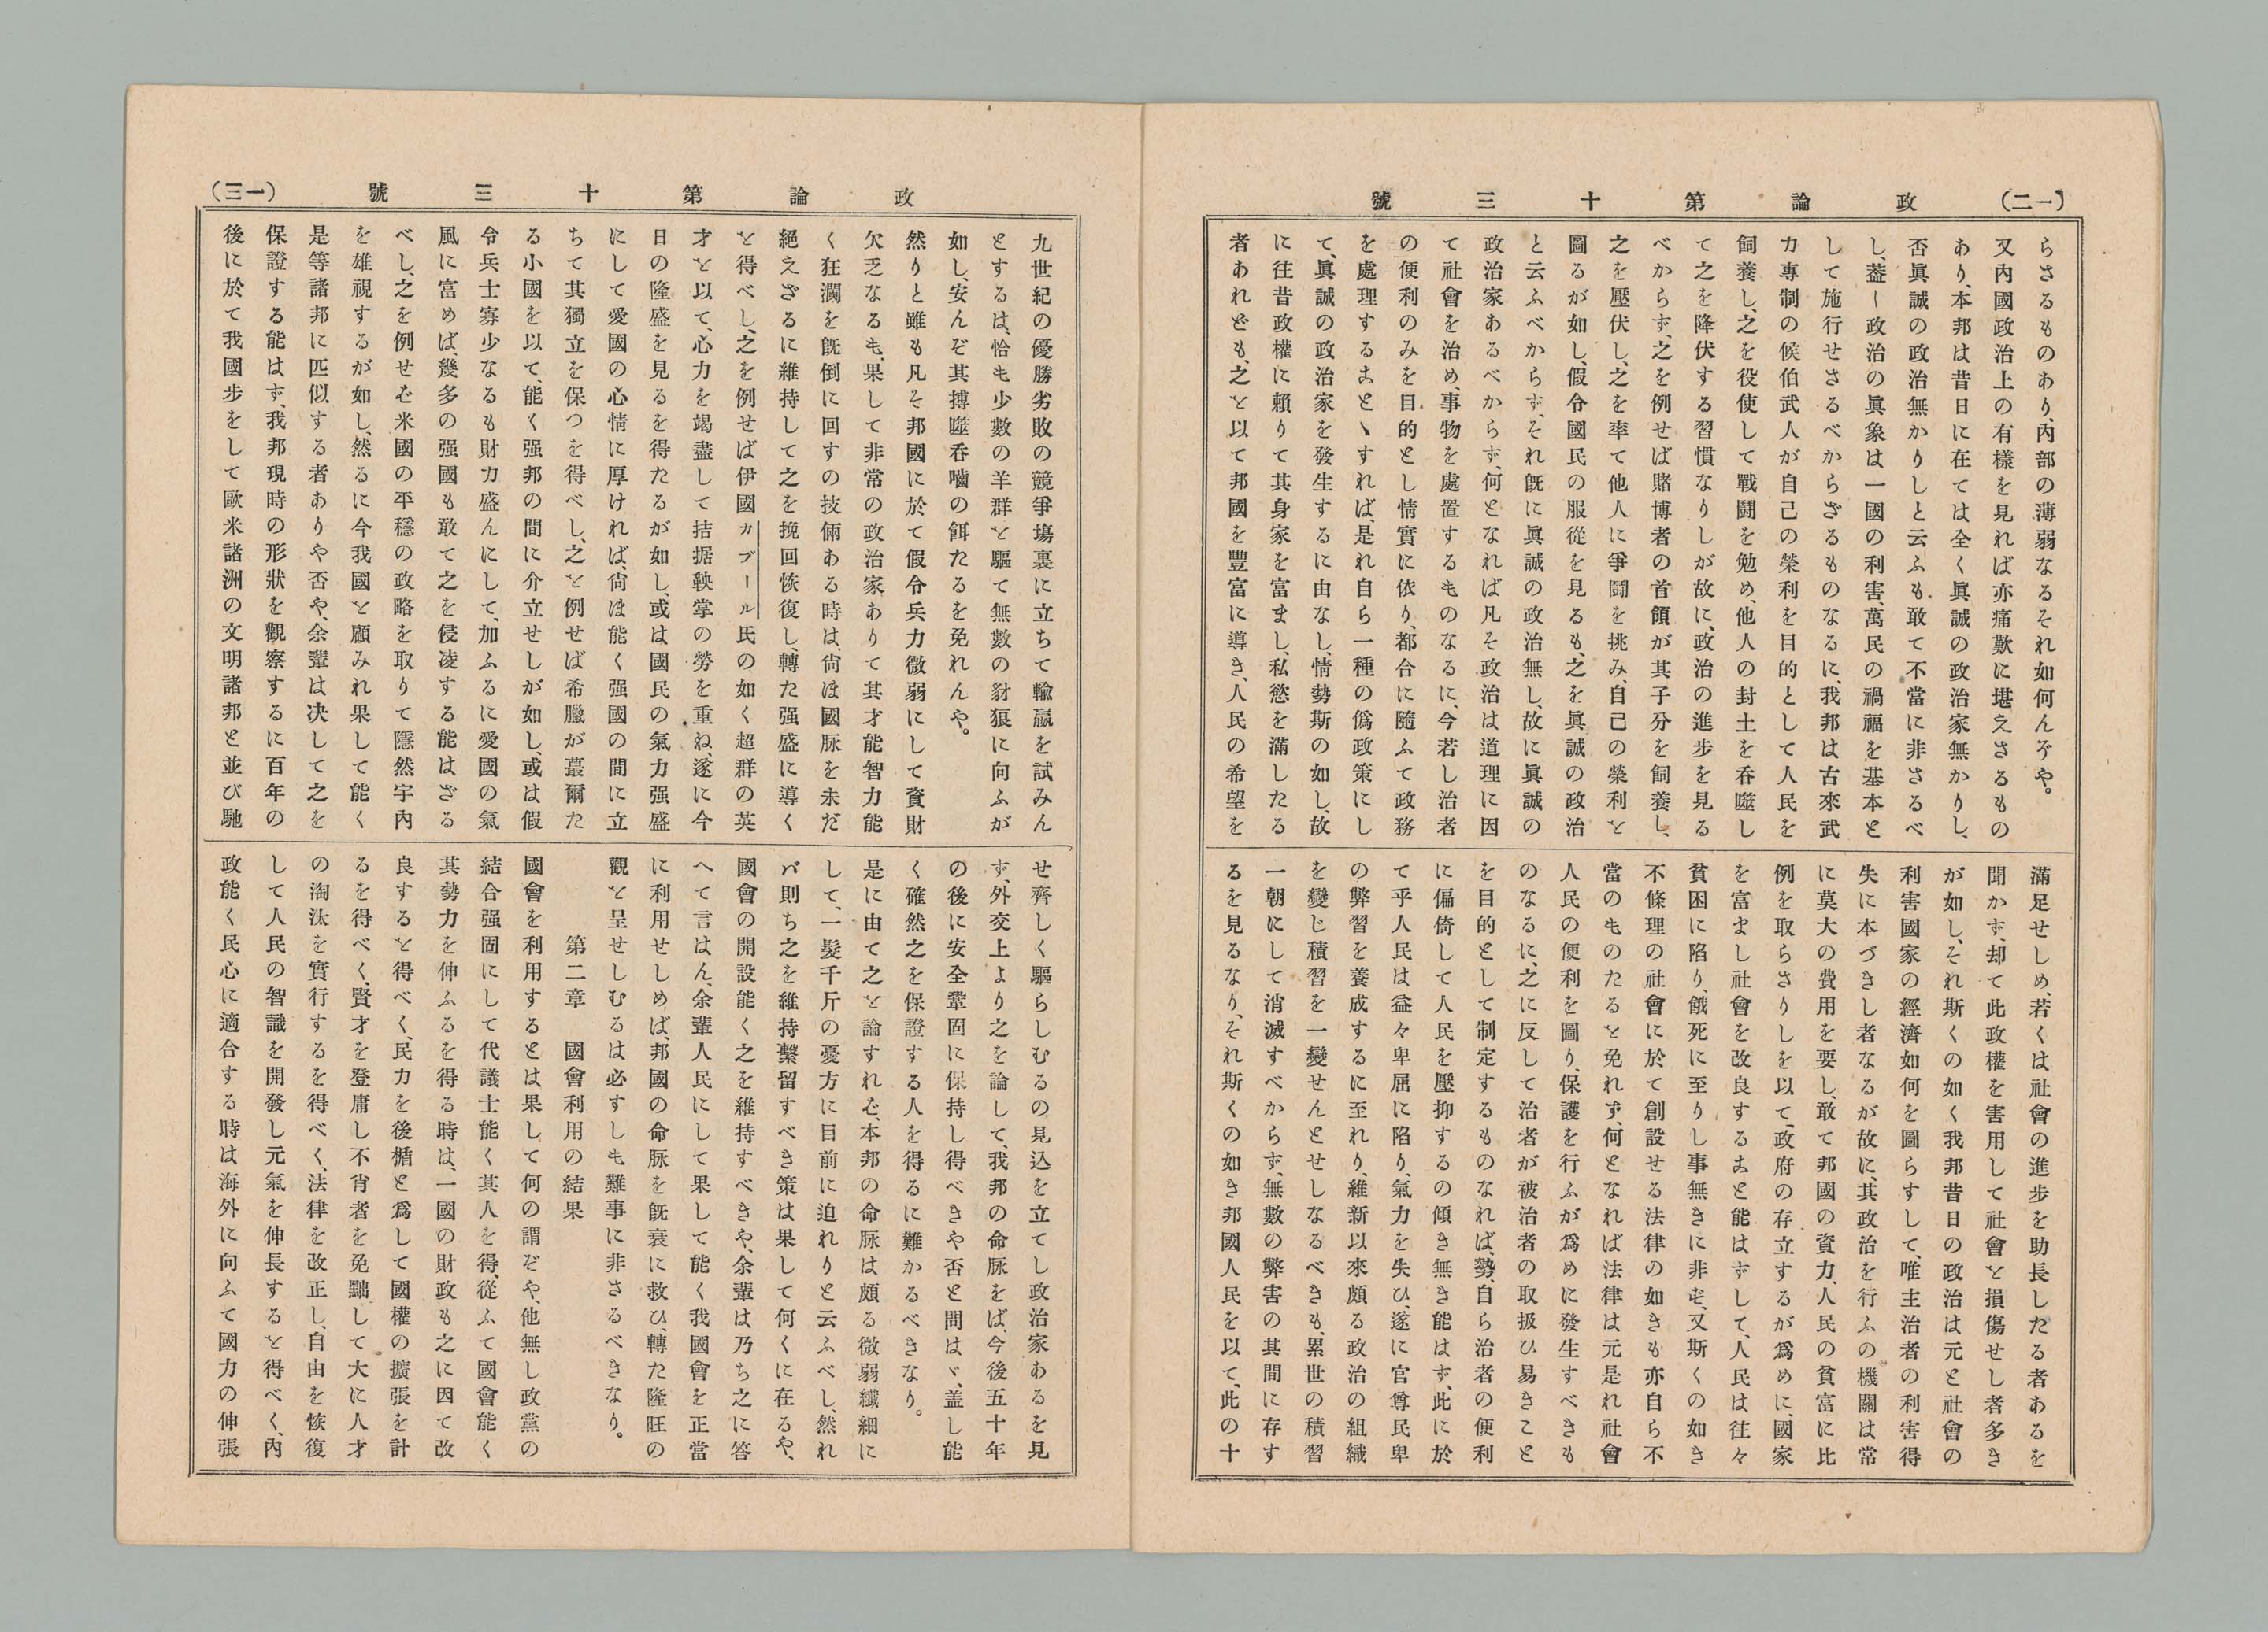 政論第十三號
（一二）
らさるものあり、內部の薄弱なるそれ如何んぞや。
又內國政治上の有樣を見れば亦痛歎に堪えさるもの
あり、本邦は昔日に在ては全く眞誠の政治家無かりし、
否眞誠の政治無かりしと云ふも敢て不當に非さるべ
し、蓋し政治の眞象は一國の利害、萬民の禍福を基本と
して施行せさるべからざるものなるに、我邦は古來武
力專制の候伯武人が自己の榮利を目的として人民を
飼養し、之を役使して戰鬪を勉め、他人の封土を呑噬し
て之を降伏する習慣なりしが故に、政治の進步を見る
べからず、之を例せば賭博者の首領が其子分を飼養し、
之を壓伏し、之を率て他人に爭鬪を挑み、自己の榮利を
圖るが如し、假令國民の服從を見るも、之を眞誠の政治
と云ふべからず、それ旣に眞誠の政治無し、故に眞誠の
政治家あるべからず、何となれば凡そ政治は道理に因
て社會を治め、事物を處置するものなるに、今若し治者
の便利のみを目的とし情實に依り、都合に隨ふて政務
を處理することヽすれば、是れ自ら一種の僞政策にし
て、眞誠の政治家を發生するに由なし、情勢斯の如し、故
に往昔政權に賴りて其身家を富まし、私慾を滿したる
者あれども、之を以て邦國を豐富に導き、人民の希望を
滿足せしめ、若くは社會の進步を助長したる者あるを
聞かず、却て此政權を害用して社會を損傷せし者多き
が如し、それ斯くの如く我邦昔日の政治は元と社會の
利害國家の經濟如何を圖らすして、唯主治者の利害得
失に本づきし者なるが故に、其政治を行ふの機關は常
に莫大の費用を要し、敢て邦國の資力、人民の貧富に比
例を取らさりしを以て、政府の存立するが爲めに、國家
を富まし社會を改良すること能はずして、人民は往々
貧困に陷り、餓死に至りし事無きに非ず、又斯くの如き
不條理の社會に於て創設せる法律の如きも亦自ら不
當のものたるを免れず、何となれば法律は元是れ社會
人民の便利を圖り、保護を行ふが爲めに發生すべきも
のなるに、之に反して治者が被治者の取扱ひ易きこと
を目的として制定するものなれば、勢、自ら治者の便利
に偏倚して人民を壓抑するの傾き無き能はず、此に於
て乎人民は益々卑屈に陷り、氣力を失ひ、遂に官尊民卑
の弊習を養成するに至れり、維新以來頗る政治の組織
を變じ積習を一變せんとせしなるべきも、累世の積習
一朝にして消滅すべからず、無數の弊害の其間に存す
るを見るなり、それ斯くの如き邦國人民を以て、此の十
政論第十三號
（一三）
九世紀の優勝劣敗の競爭塲裏に立ちて輸贏を試みん
とするは、恰も少數の羊群を驅て無數の豺狼に向ふが
如し、安んぞ其搏噬呑嚙の餌たるを免れんや。
然りと雖も凡そ邦國に於て假令兵力微弱にして資財
欠乏なるも、果して非常の政治家ありて其才能智力能
く狂瀾を旣倒に回すの技倆ある時は、尙ほ國脉を未だ
絕えざるに維持して之を挽回恢復し、轉た强盛に導く
を得べし、之を例せば伊國カブール氏の如く超群の英
才を以て、心力を竭盡して拮据鞅掌の勞を重ね、遂に今
日の隆盛を見るを得たるが如し、或は國民の氣力强盛
にして愛國の心情に厚ければ、尙ほ能く强國の間に立
ちて其獨立を保つを得べし、之を例せば希臘が蕞爾た
る小國を以て、能く强邦の間に介立せしが如し、或は假
令兵士寡少なるも財力盛んにして、加ふるに愛國の氣
風に富めば、幾多の强國も敢て之を侵凌する能はざる
べし、之を例せば米國の平穩の政略を取りて隱然宇內
を雄視するが如し、然るに今我國を顧みれ果して能く
是等諸邦に匹似する者ありや否や、余輩は决して之を
保證する能はず、我邦現時の形狀を觀察するに百年の
後に於て我國步をして歐米諸洲の文明諸邦と並び馳
せ齊しく驅らしむるの見込を立てし政治家あるを見
ず、外交上より之を論して、我邦の命脉をば、今後五十年
の後に安全鞏固に保持し得べきや否と問はヾ、盖し能
く確然之を保證する人を得るに難かるべきなり。
是に由て之を論すれば、本邦の命脉は頗る微弱纎細に
して、一髮千斤の憂方に目前に迫れりと云ふべし、然れ
バ則ち之を維持繫留すべき策は果して何くに在るや、
國會の開設能く之を維持すべきや、余輩は乃ち之に答
へて言はん、余輩人民にして果して能く我國會を正當
に利用せしめば、邦國の命脉を旣衰に救ひ、轉た隆旺の
觀を呈せしむるは必すしも難事に非さるべきなり。
第二章　國會利用の結果
國會を利用するとは果して何の謂ぞや、他無し政黨の
結合强固にして代議士能く其人を得、從ふて國會能く
其勢力を伸ふるを得る時は、一國の財政も之に因て改
良するを得べく、民力を後楯と爲して國權の擴張を計
るを得べく、賢才を登庸し不肖者を免黜して大に人才
の淘汰を實行するを得べく、法律を改正し、自由を恢復
して人民の智識を開發し元氣を伸長するを得べく、內
政能く民心に適合する時は海外に向ふて國力の伸張